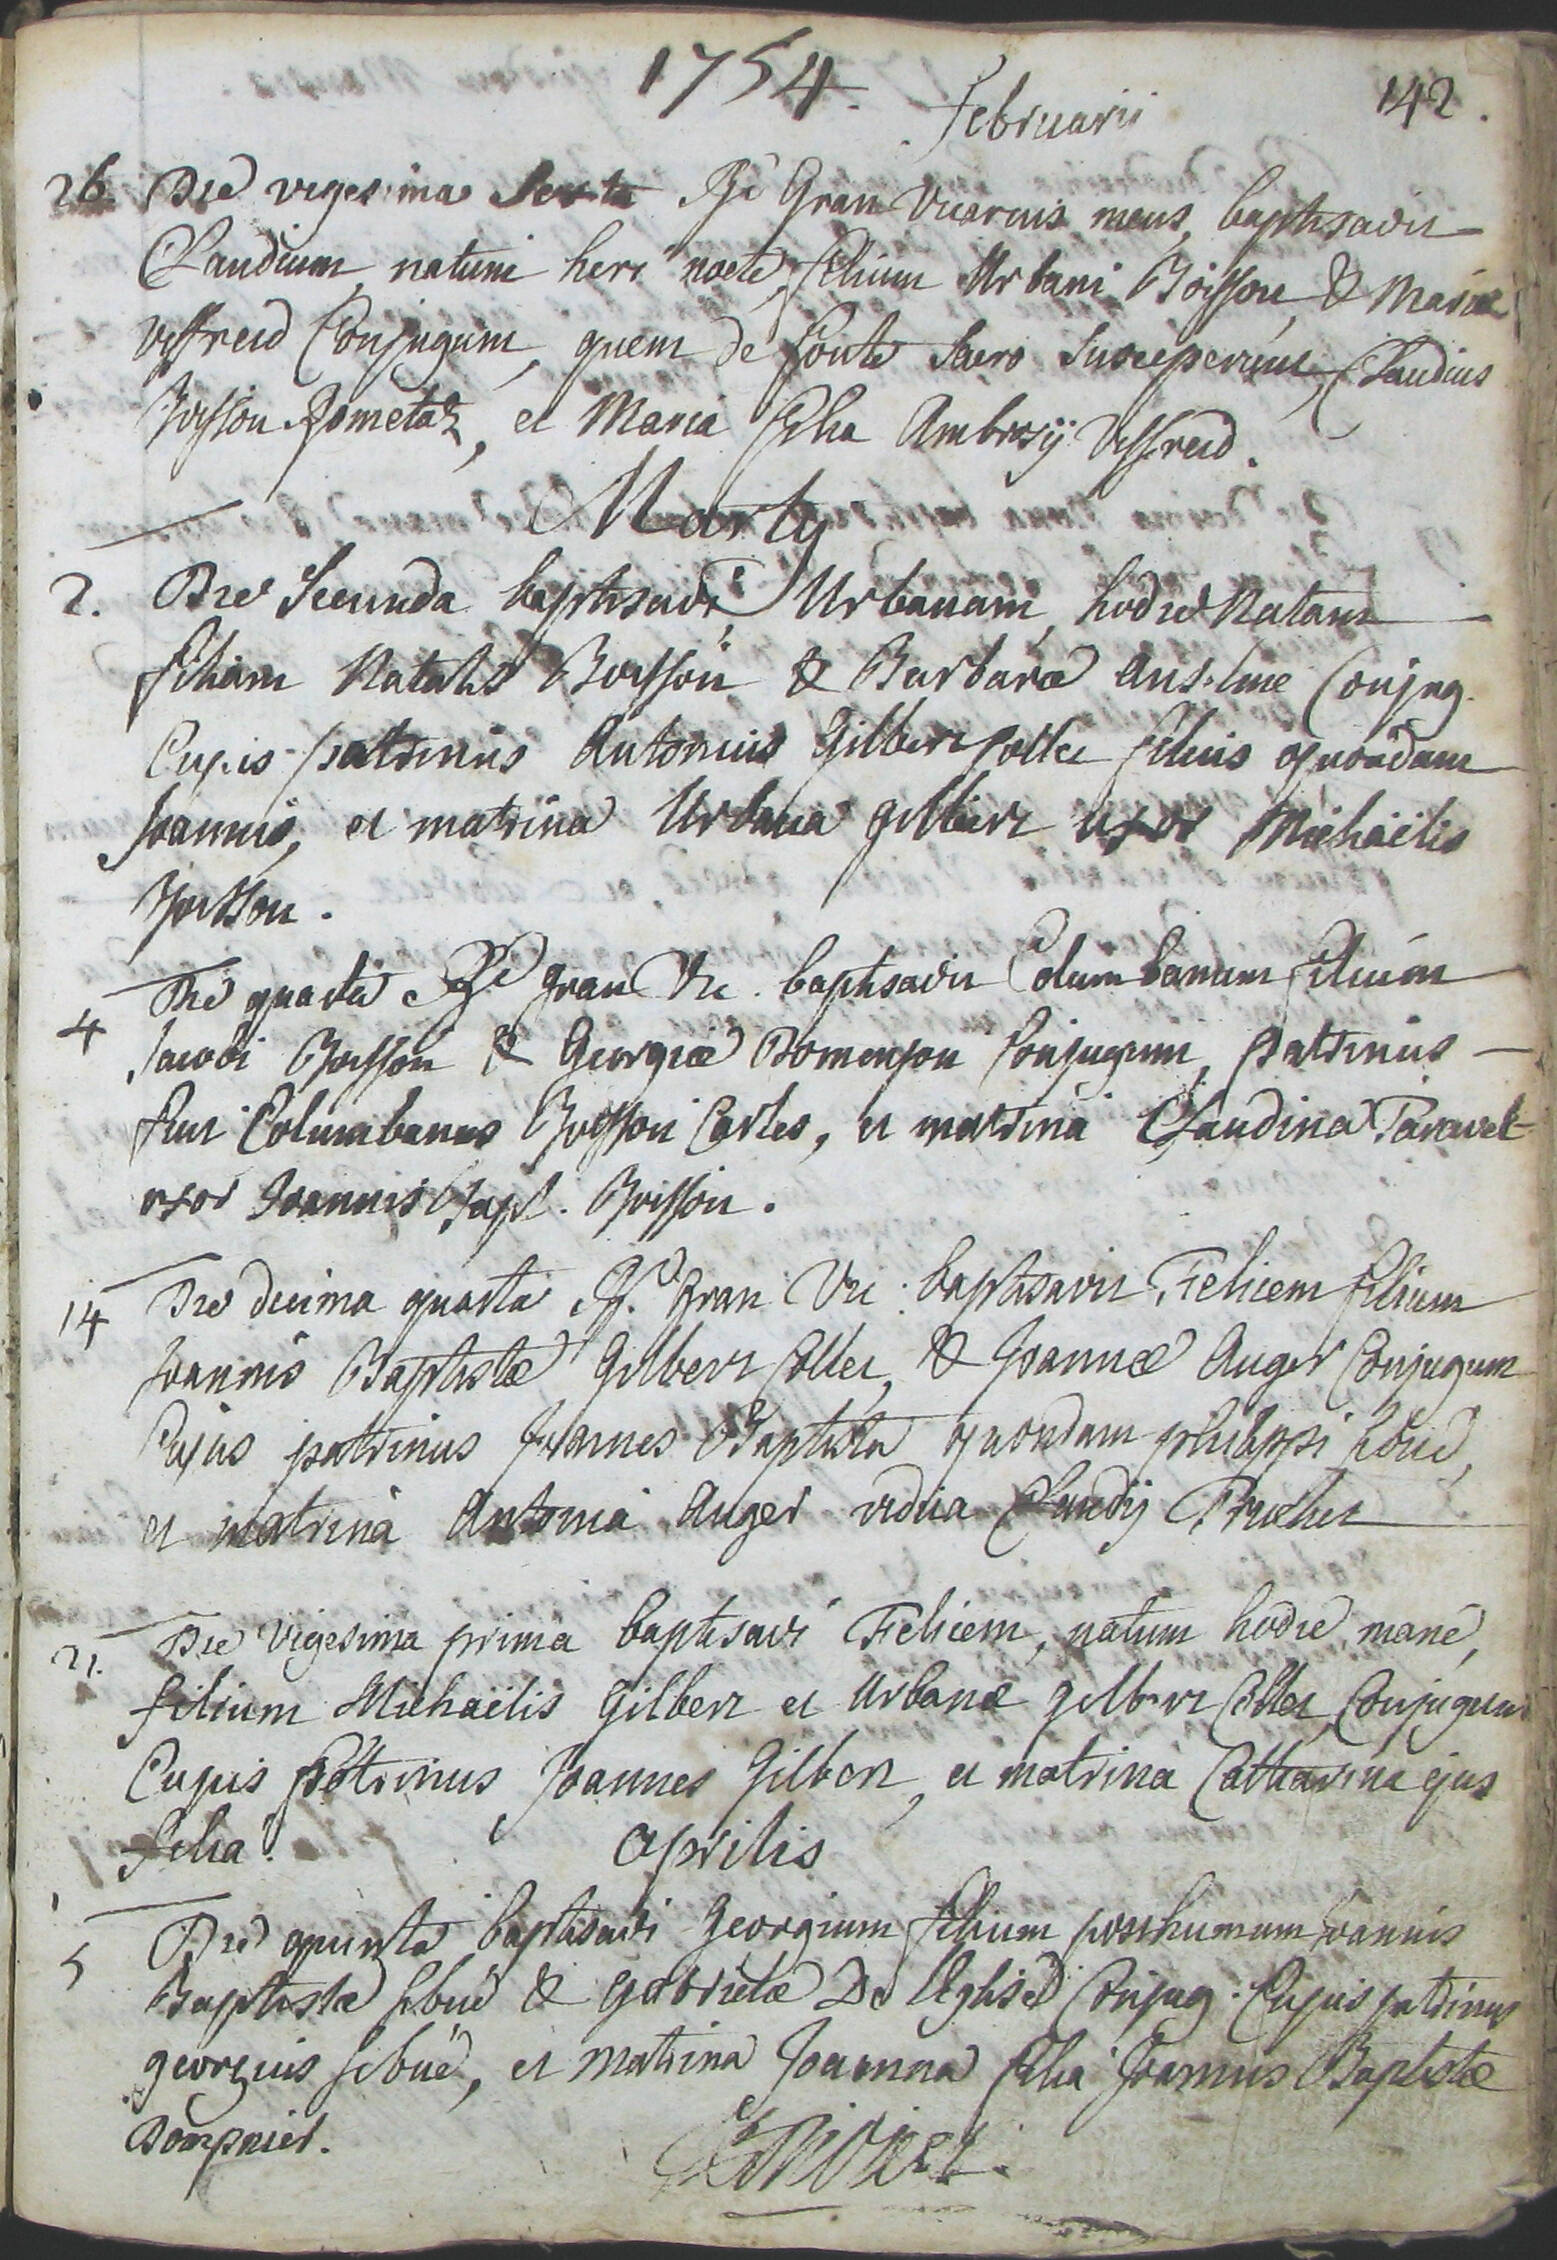 1754.
142.
Februarii
26. Die vigesima Sexta Rd Gran Vicarius meus, baptisavit
Claudium natum heri nocte, filium Urbani Boisson, & Mariæ
Uffreid Conjugum, quem de fonte Sacro Susceperunt, Claudius
Boisson Jometaz, et Maria filia Ambrosij Uffreid.
Martij
2. Die Secunda baptisavi Urbanam, hodie Natam
filiam Natalis Boisson & Barbaræ Anselme Conjug.
Cujus patrinus Antonius Gilbert Collet filius quondam
Joannis, et matrina Urbana gilbert uxor Michaëlis
Boisson.
4 Die quarta Rd gran Vic. baptisavit Columbanum filium
Jacobi Boisson & Georgiæ Domenjon Conjugum, patrinus
fuit Columbanus Boisson Carles, et matrina Claudina Paravel
uxor Joannis Bapt. Boisson.
14 Die decima quarta Rd. gran Vic. baptisavit Felicem filium
Joannis Baptistæ Gilbert Collet, & Joannæ Auger Conjugum
Cujus patrinus Joannes Baptista quondam philippi Siboüe,
et matrina Antonia Auger vidua Claudij
21. Die vigesima prima baptisavi Felicem, natum hodie mane,
filium Michaëlis Gilbert et Urbanæ gilbert Collet Conjugum
Cujus patrinus Joannes Gilbert, et matrina Catharina ejus
filia.
Aprilis
5 Die quinta baptisavi Georgium filium posthumum Joannis
Baptistæ Siboüe & gabrielæ De l'Eglise Conjug. Cujus patrinus
georgius Siboüe, et matrina Joanna filia Joannis Baptistæ
Dompnier.